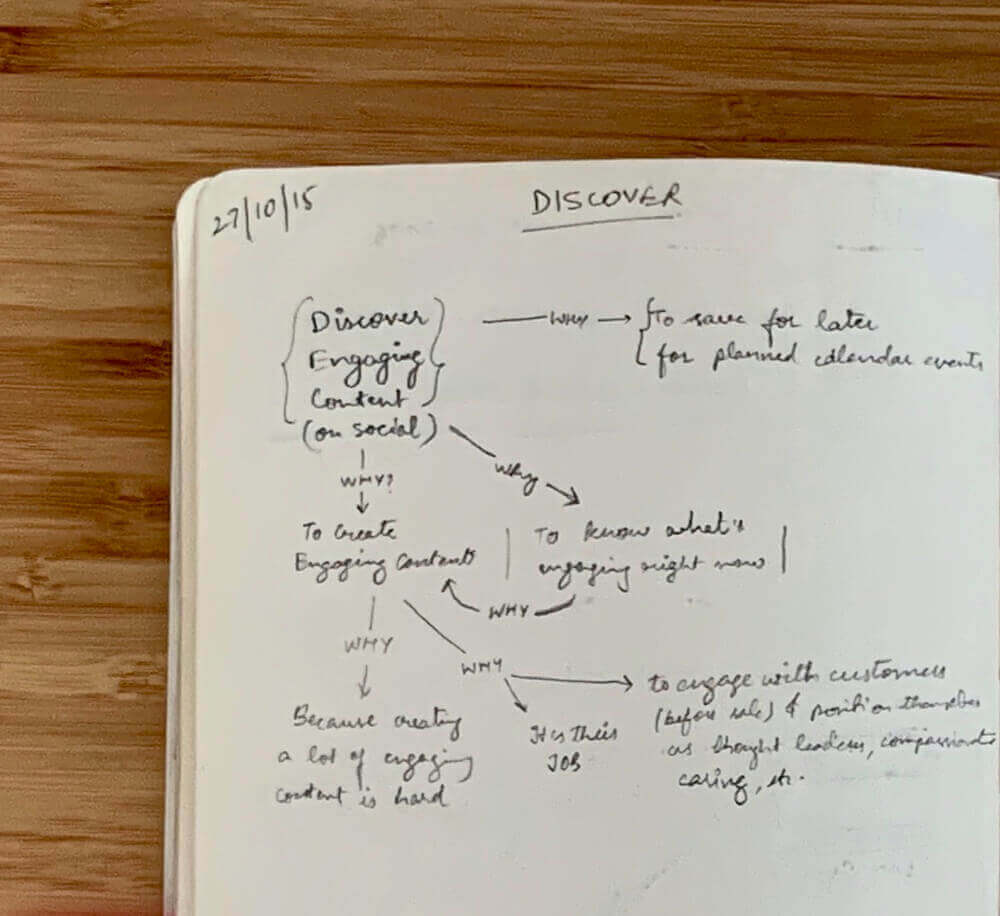 27/10/15
DISCOVER
Discover
Engaging
Content
(on social)
WHY
To save for later
for planned calendar events
WHY?
Why
To create
Engaging Contents
To know what's
engaging right now
WHY
WHY
WHY
Because creating
a lot of engaging
content is hard
It is their
JOB
to engage with customers
(before sale) & position themselves
as thought leaders, compassionate
caring, etc.